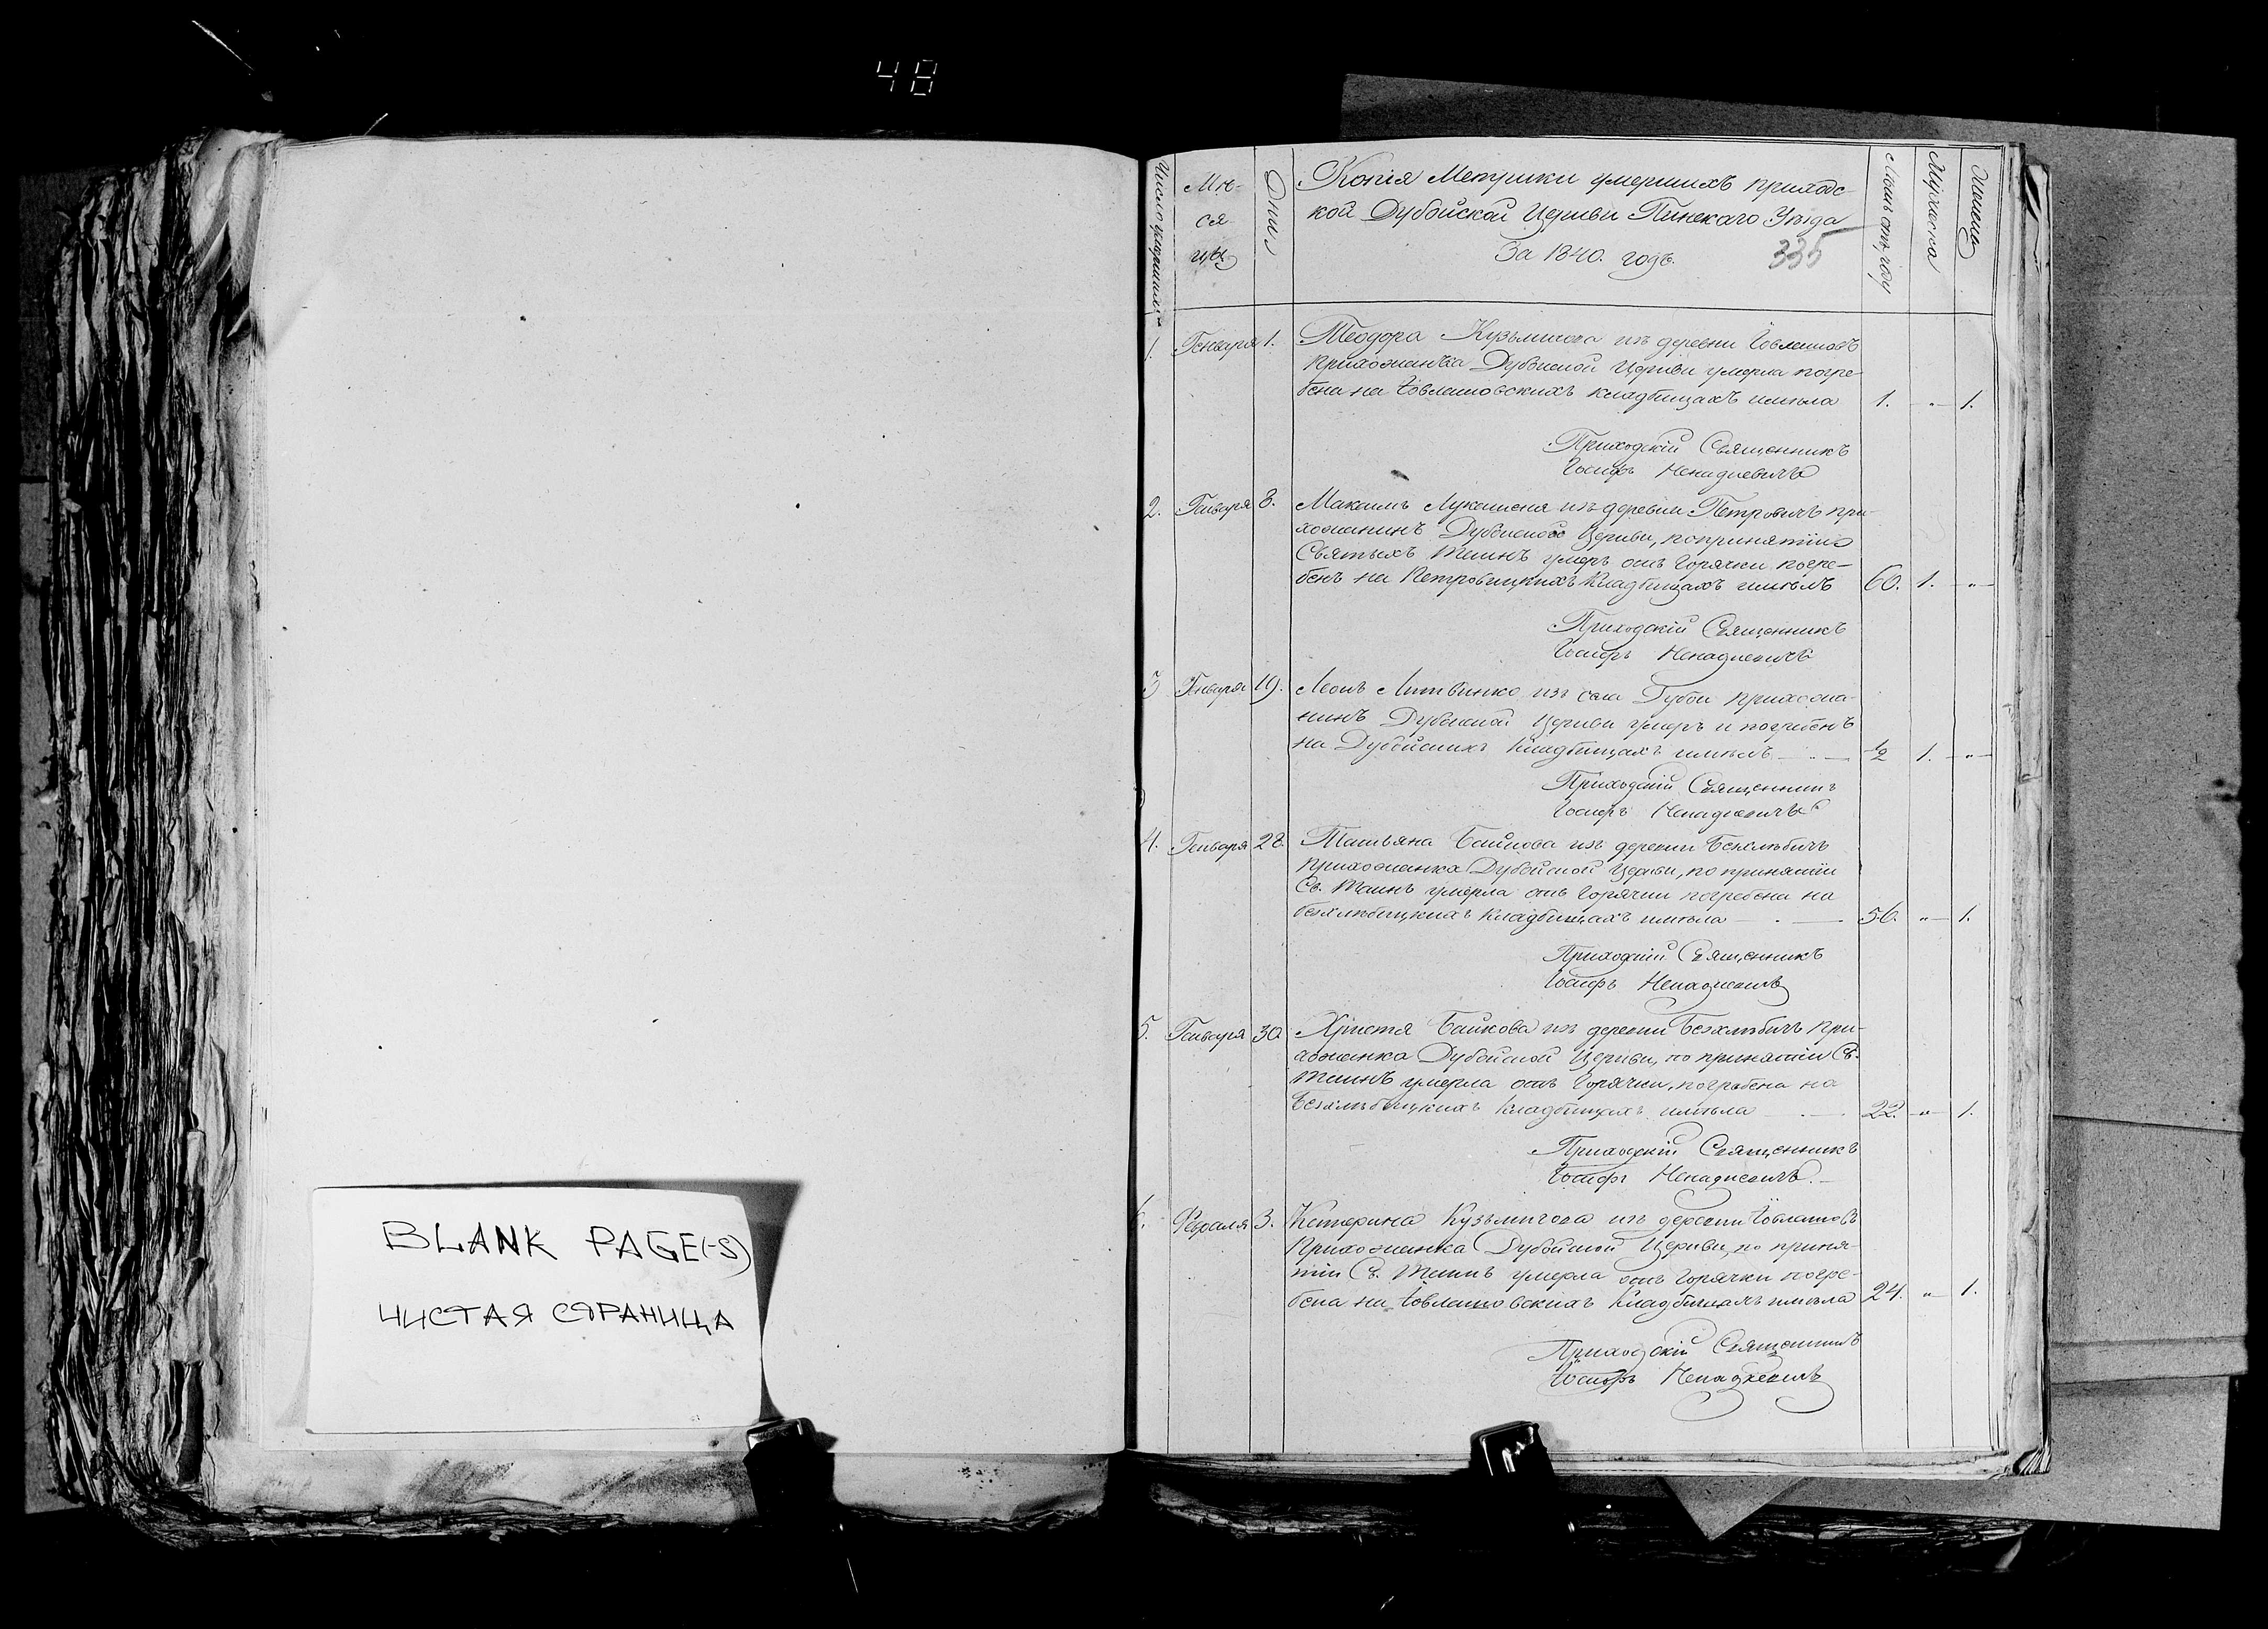 48
BLANK PAGE(-S)
ЧИСТАЯ СТРАНИЦА
Число умершихъ
Мѣ-
ся-
цы
Дни
Копія Метрики умершихъ приходс-
кой Дубойской Церкви Пинскаго Уѣзда
За 1840. годъ.
335
Мужеска
Женска
1. Генваря 1. Теодора Кузьмичова изъ деревни
прихожанка Дубойской Церкви умерла погре-
бена на кладбищахъ имѣла 1. „ 1.
Приходскій Священникъ
Іосифъ Ненадкевичъ
2. Генваря 8. Максимъ Лукашеня изъ деревни Петровичъ при-
хожанинъ Дубойской Церкви, по принятіи
Святыхъ Таинъ умеръ отъ Горячки погре-
бенъ на Петровицкихъ Кладбищахъ имѣлъ 60. 1. „
Приходскій Священникъ
Іосифъ Ненадкевичъ
3 Генваря 19. Леонъ Литвинко изъ села Дубои прихожа-
нинъ Дубойской Церкви умеръ и погребенъ
на Дубойскихъ Кладбищахъ имѣлъ 1/2 1. „
Приходскій Священникъ
Іосифъ Ненадкевичъ
4. Генваря 28. Татьяна Байкова изъ деревни Безхлѣбичъ
прихожанка Дубойской Церкви, по принятіи
Св. Таинъ умерла отъ Горячки погребена на
безхлѣбицкихъ Кладбищахъ имѣла 56. „ 1.
Приходскій Священникъ
Іосифъ Ненадкевичъ
5. Генваря 30. Христя Байкова изъ деревни Безхлѣбичъ при-
хожанка Дубойской Церкви, по принятіи Св.
Таинъ умерла отъ Горячки, погребена на
Безхлѣбицкихъ Кладбищахъ имѣла 22. „ 1.
Приходскій Священникъ
Іосифъ Ненадкевичъ.
6. Февраля 3. Катерина Кузьмичова изъ деревни
Прихожанка Дубойской Церкви, по приня-
тіи Св. Таинъ умерла отъ Горячки погре-
бена на Кладбищахъ имѣла 24. „ 1.
Приходскій Священникъ
Іосифъ Ненадкевичъ